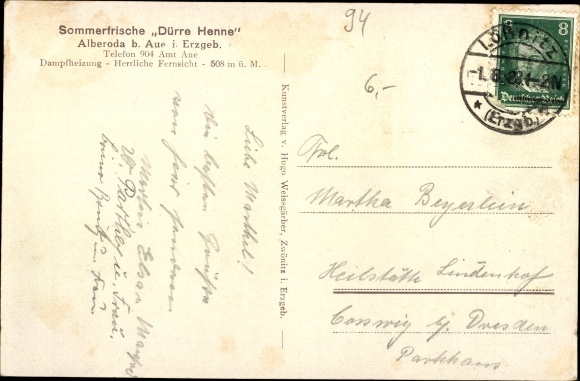 Sommerfrische „Dürre Henne"
Alberoda b. Aue i. Erzgeb.
Telefon 904 Amt Aue
Dampfheizung - Herrliche Fernsicht - 508 m ü. M.
94
6,-
8 8
Deutsches Reich
LÖẞNITZ
-1. 8. 28. 1-2N
* (Erzgb.)
Liebe Marthel!
Die besten Grüße
von hier senden
Kunstverlag v. Hugo Weissgärber, Zwönitz i. Erzgeb.
Frl.
Martha Beyerlein
Heilstätte Lindenhof
Coswig b/ Dresden
Parkhaus